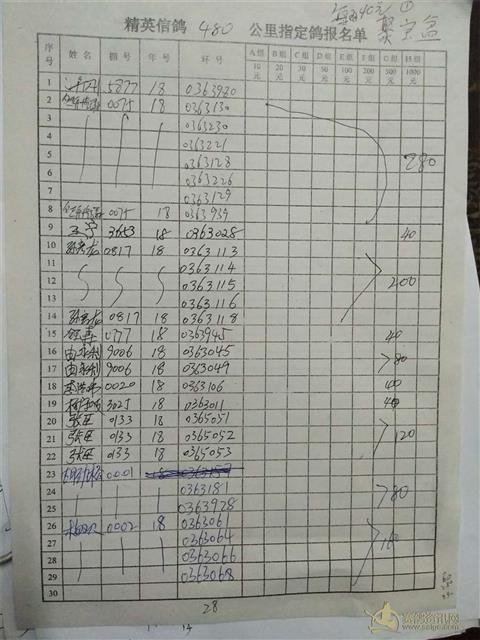 每羽40元 ①
聚宝盆
精英信鸽 480 公里指定鸽报名单
序号 姓名 棚号 年号 环号 A组 B组 C组 D组 E组 F组 G组 H组
10元 20元 30元 50元 100元 200元 500元 1000元
1 5877 18 0363980
2 0075 18 0363130
3 0363230
4 0363221
5 0363128 280
6 0363226
7 0363129
8 0075 18 0363939
9 18 0363028 40
10 0817 18 0363113
11 0363114
12 0363115 200
13 0363116
14 0817 18 0363118
15 0777 18 0363945 40
16 由永利 9006 18 0363045
17 由永利 9006 18 0363049 80
18 0020 18 0363106 40
19 3025 18 0363011 40
20 张臣 0133 18 0365051
21 张臣 0133 18 0365052 120
22 张臣 0133 18 0365053
23 0001
24 0363181 80
25 0363928
26 0002 18 0363061
27 0363064 160
28 0363066
29 0363068
30
28
14
赛鸽资讯网
www.saige.com